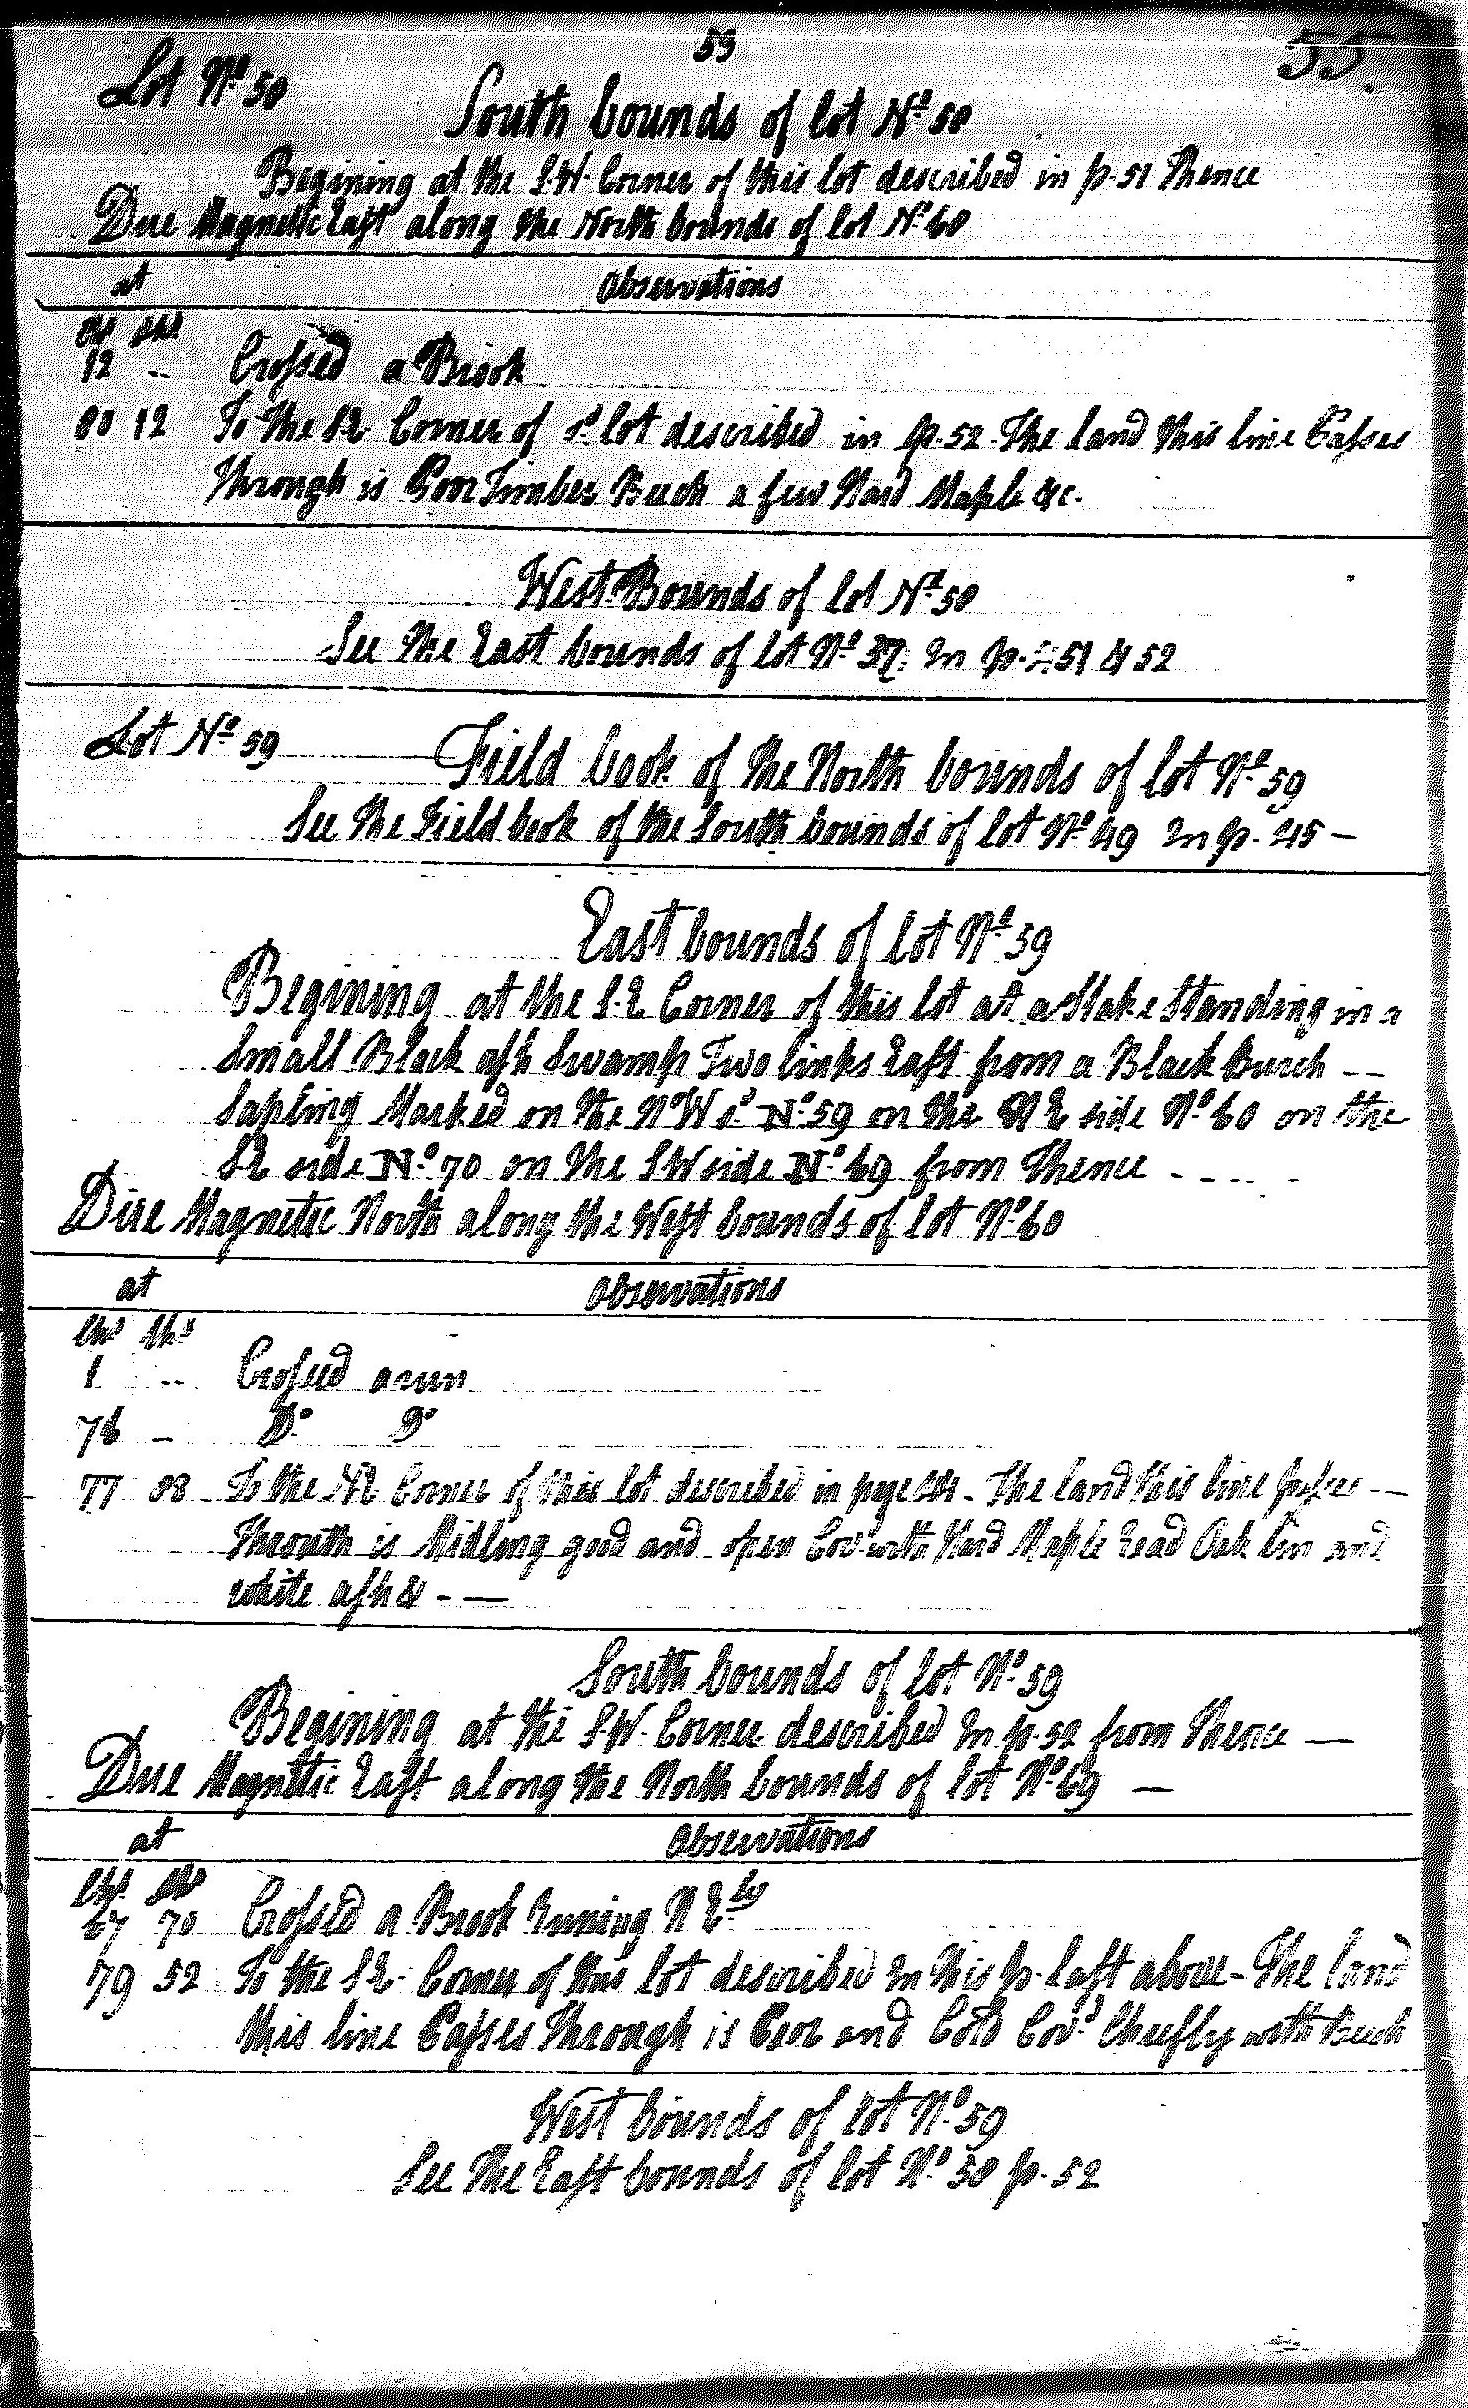 53
55
Lot No. 50
South bounds of lot No. 50
Begining at the S.W. Corner of this lot described in p. 51 Thence
Due Magnetic East along the North bounds of lot No. 60
at Observations
chs lks
12 -- Crossed a Brook
80 12 To the SE Corner of sd. lot described in p. 52 - The land this line Passes
Through is Poor Timber Beech a few Hard Maple &c.
West Bounds of lot No. 50
See The East bounds of lot No. In p. 51 & 52
Lot No. 59
Field book of the North bounds of lot No. 59
See the Field book of the South bounds of lot No. 49 In p. 45 -
East bounds of lot No. 59
Begining at the S.E Corner of this lot at a Stake Standing in a
Small Black ash Swamp Two links East from a Black Burch --
Sapling Marked on the N W sd. No. 59 on the N E side No. 60 on the
SE side No. 70 on the SW side No. 69 from Thence - - - - -
Due Magnetic North along the West bounds of lot No. 60
at Observations
chs lks
1 -- Crossed a run
76 - Do. Do.
77 08 To the NE Corner of this lot described in page - The land this line passes --
Throuth is Midling good and open Cov. with Hard Maple Read Oak Lin and
white ash & - —
South bounds of lot No. 59
Begining at the S.W. Corner described In p. 52 from Thence —
Due Magnetic East along the North bounds of lot No. 69 —
at Observations
chs lks
67 70 Crossed a Brook Runing N E.ly
79 52 To the SE. Corner of this lot described In this p. last above - The land
this line Passes Through is Poor and Cold Covd. Cheefly with Beech
West bounds of lot No. 59
See The East bounds of lot No. 50 p. 52